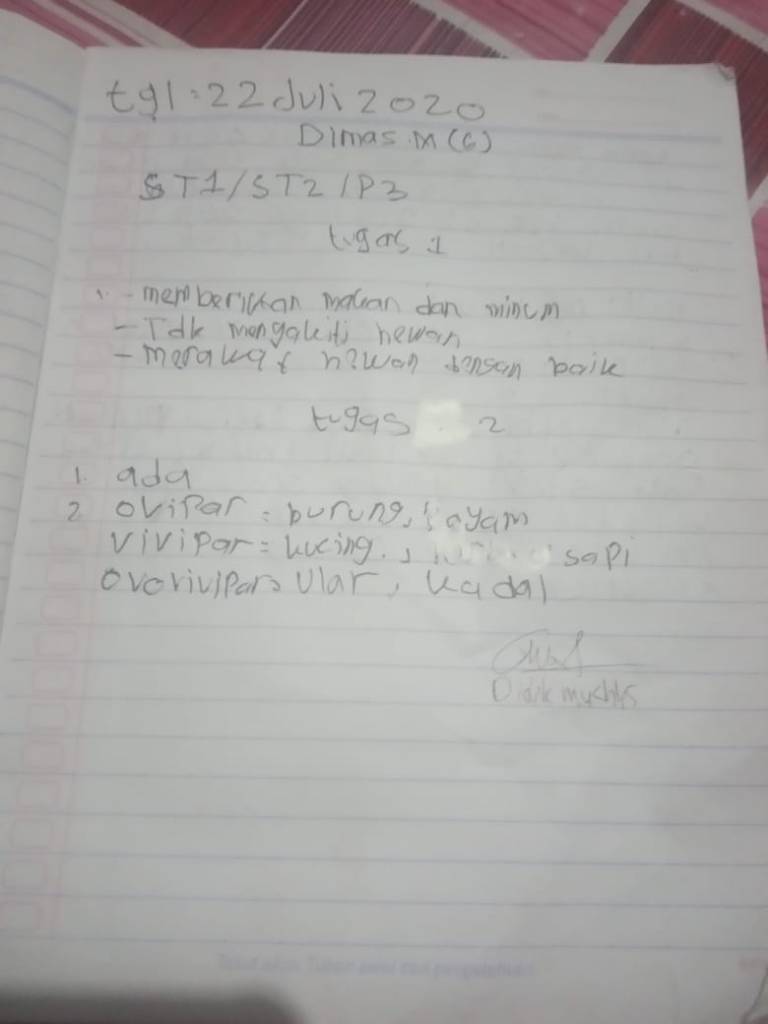 tgl : 22 Juli 2020
Dimas.M (6)
ST1/ST2/P3
tugas 1
1. - memberikan makan dan minum
- Tdk mengakiti hewan
- merawat hewan dengan baik
tugas 2
1. ada
2. OViPar = burung, ayam
ViViPar = kucing, sapi
OVOViViPar = Ular, kadal
Didik